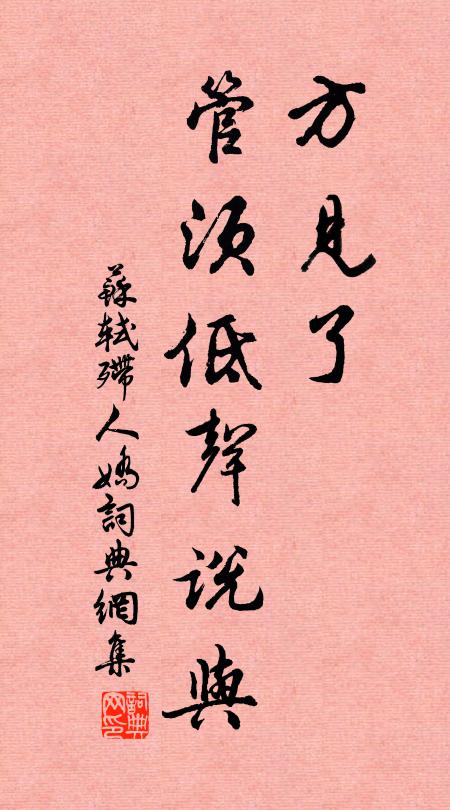 方見了
管須低聲說與
蘇軾殢人嬌詞典網集
詞典網印